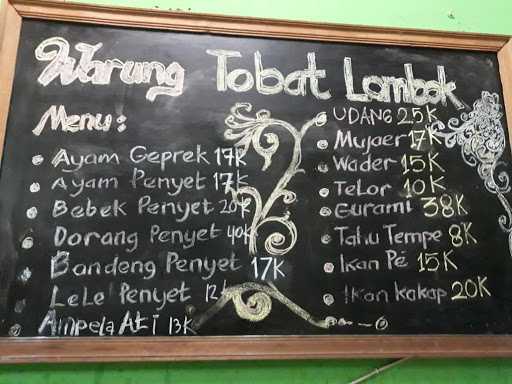 Warung Tobat Lombok
Menu:
Ayam Geprek 17K
Ayam Penyet 17K
Bebek Penyet 20K
Dorang Penyet 40K
Bandeng Penyet 17K
LeLe Penyet 12K
Ampela ATI 13K
UDANG 25K
Mujaer 17K
Wader 15K
Telor 10K
Gurami 38K
Tahu Tempe 8K
Ikan Pe 15K
Ikan Kakap 20K